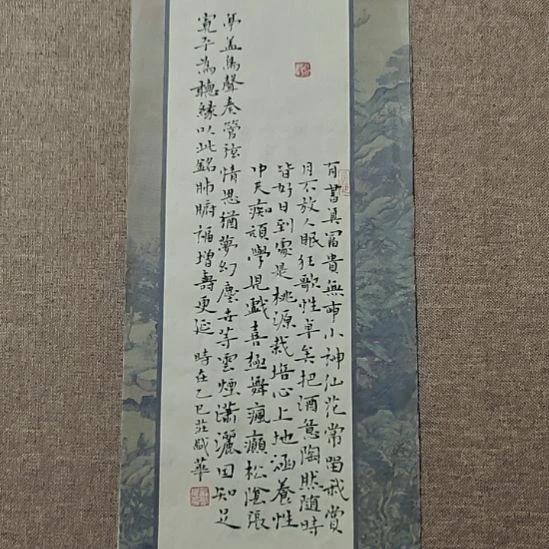 有書真富貴無事小神仙花常留我賞
月不放人眠狂歌性卓矣把酒意陶然隨時
皆好日到處是桃源栽培心上地涵養性
中天痴頑學兒戲喜極舞瘋癲松陰張
蓋鳥聲奏管弦情思猶夢幻塵世等雲煙瀟灑因知足
寬平為聽緣以此銘肺腑福增壽更延 時在乙巳莊華